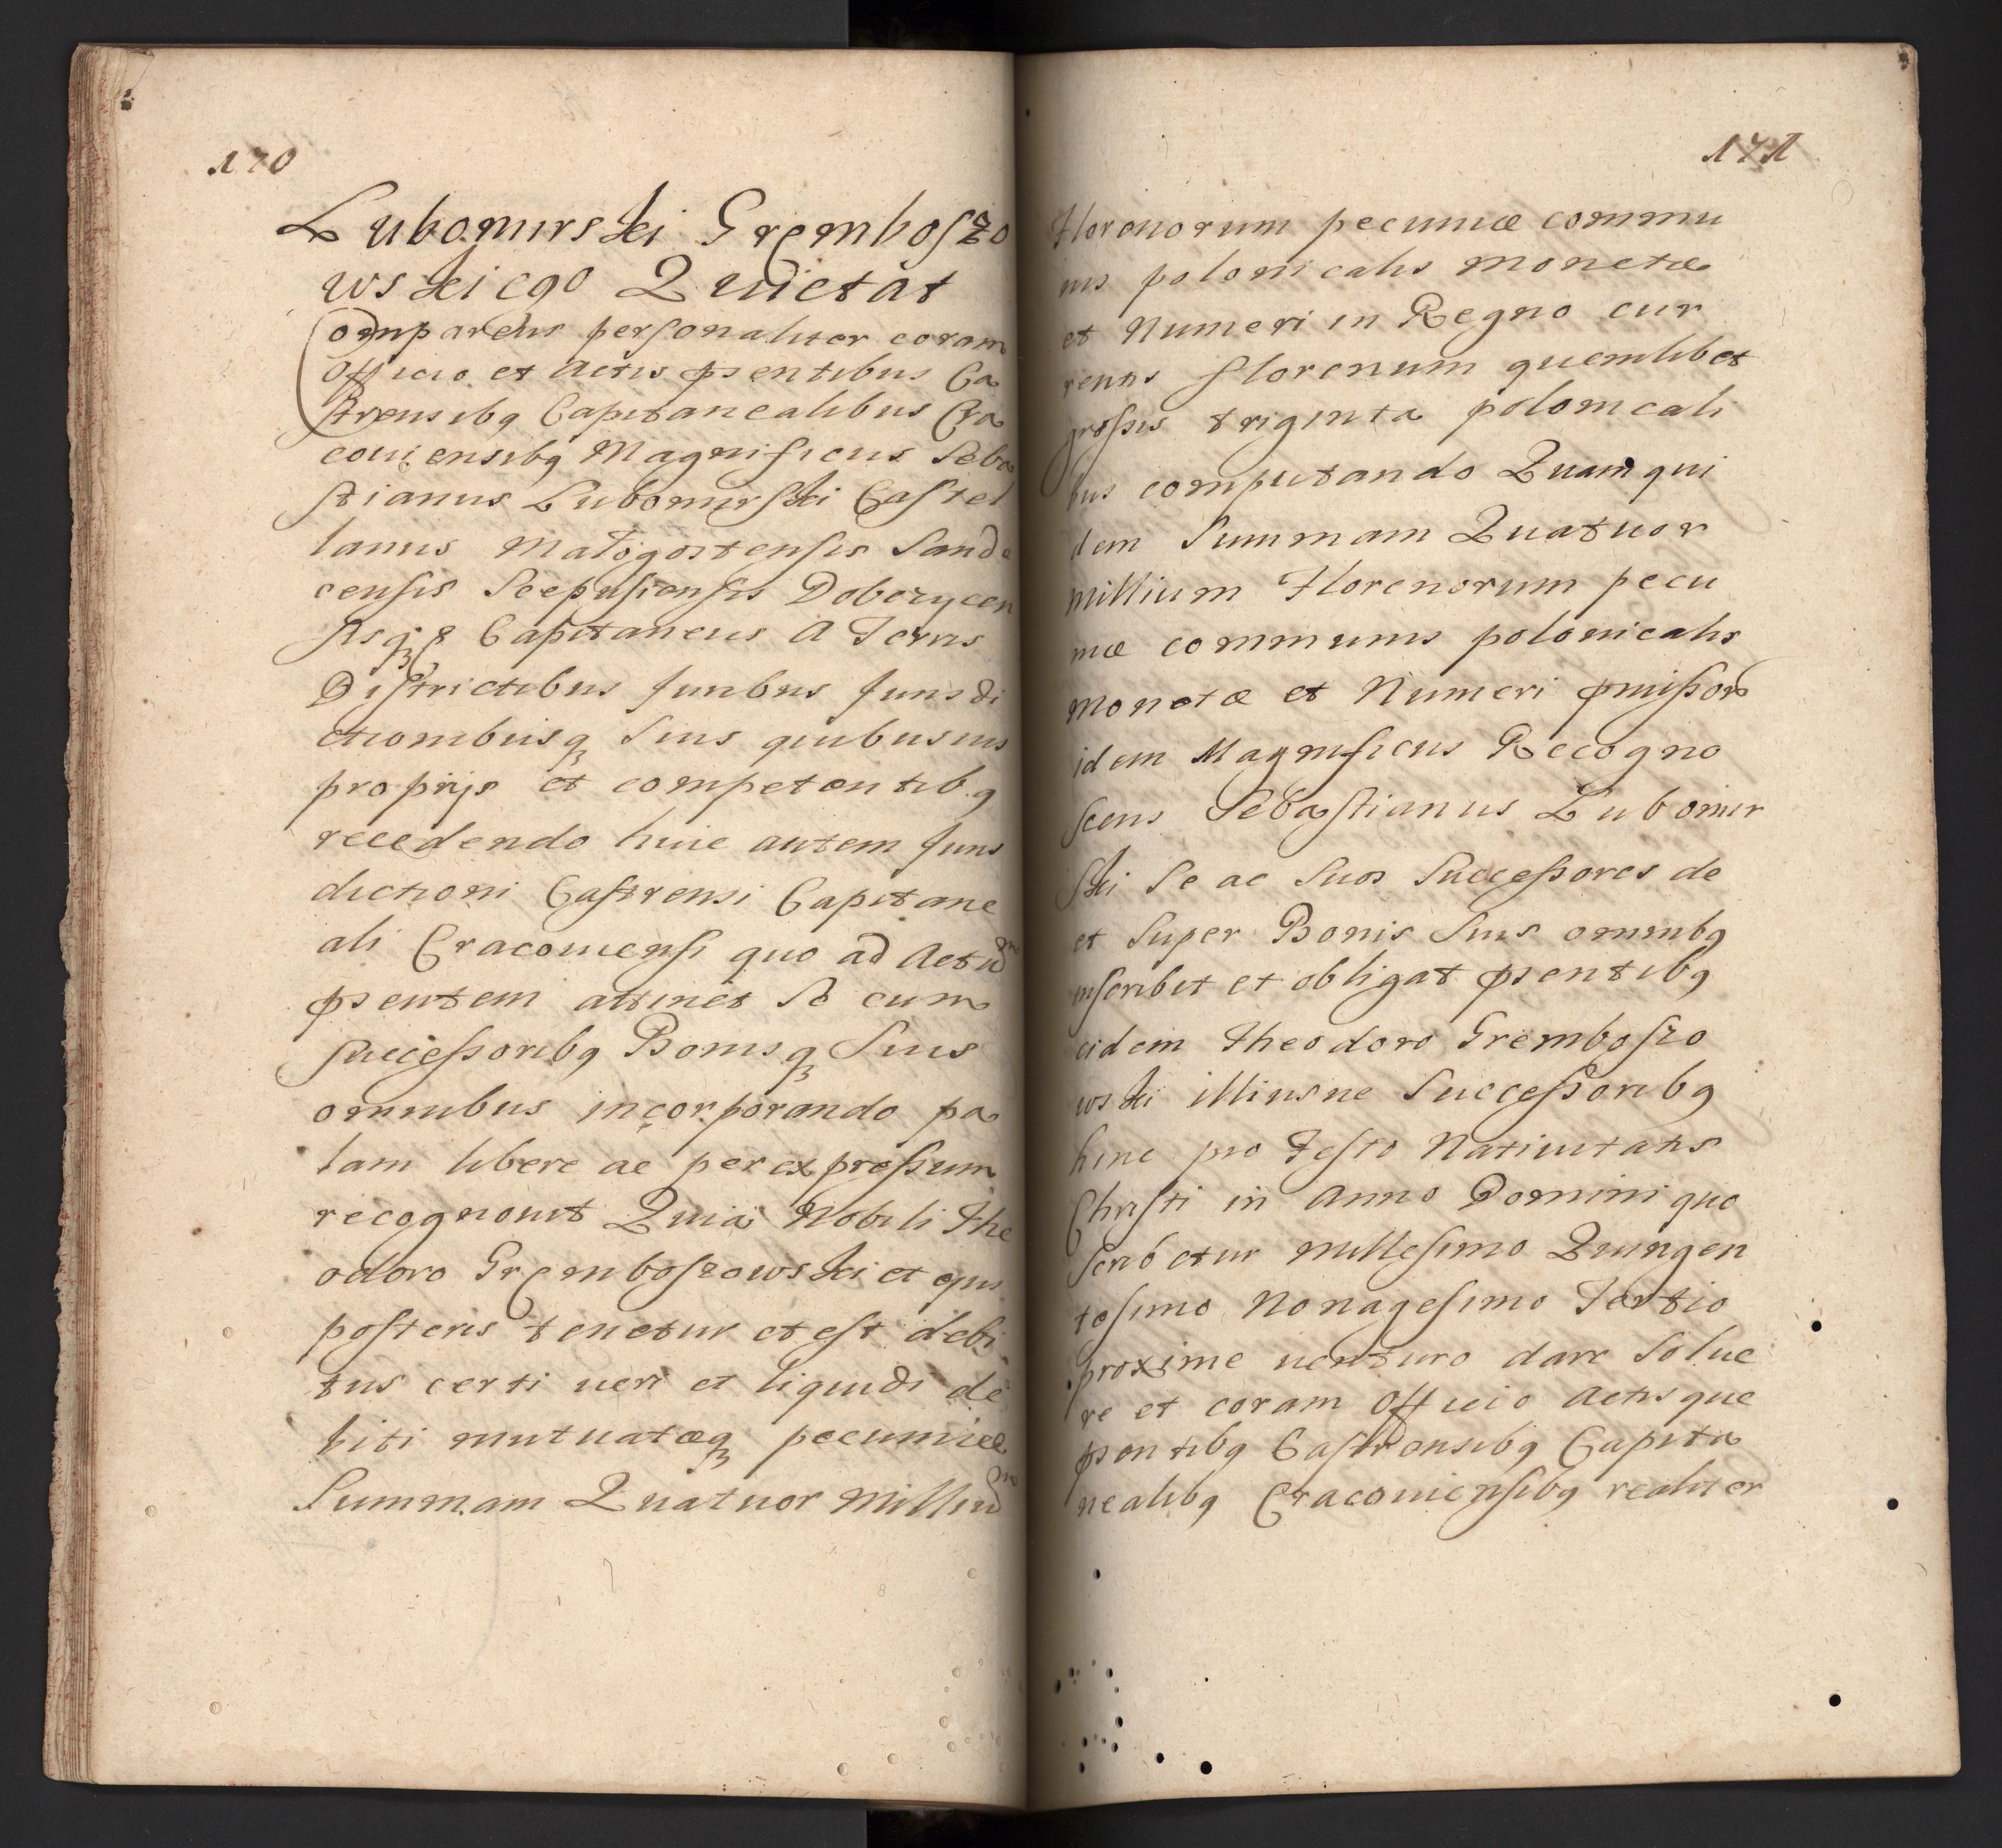 170
Lubomirski Gremboszo
wskiego Quietat
Comparens personaliter coram
Officio et Actis pñsentibus Ca
strensibq Capitanealibus Cra
couiensibq Magnificus Seba
stianus Lubomirski Castel
lanus Małogostensis Sande
censis Scepusiensis Dobczycen
sisq Capitaneus A Terris
Districtibus Juribus Jurisdi
ctionibusq Suis quibusuis
proprijs et competentibq
recedendo huic autem Juris
dictioni Castrensi Capitane
ali Cracouiensi quo ad Actum
pñsentem attinet Se cum
Successoribq Bonisq Suis
omnibus incorporando pa
lam libere ac per expressum
recognouit Quia Nobili The
odoro Gremboszowski et eius
posteris tenetur et est debi
tus certi ueri et liquidi de
biti mutuatæq pecuniæ
Summam Quatuor Millium
171
Florenorum pecuniæ commu
nis polonicalis monetæ
et Numeri in Regno cur
rentis florenum quemlibet
grossis triginta polonicali
bus computando Quam qui
dem Summam Quatuor
Millium Florenorum pecu
niæ communis polonicalis
Monetæ et Numeri pmissor
idem Magnificus Recogno
scens Sebastianus Lubomir
ski Se ac Suos Successores de
et Super Bonis Suis omnibq
inscribit et obligat pñsentibq
eidem Theodoro Gremboszo
wski illiusue Successoribq
hinc pro Festo Natiuitatis
Christi in Anno Domini quo
scribetur millesimo Quingen
tesimo Nonagesimo Tertio
proxime uenturo dare Solue
re et coram Officio Actisque
pñsentibq Castrensibq Capita
nealibq Cracouiensibq realiter